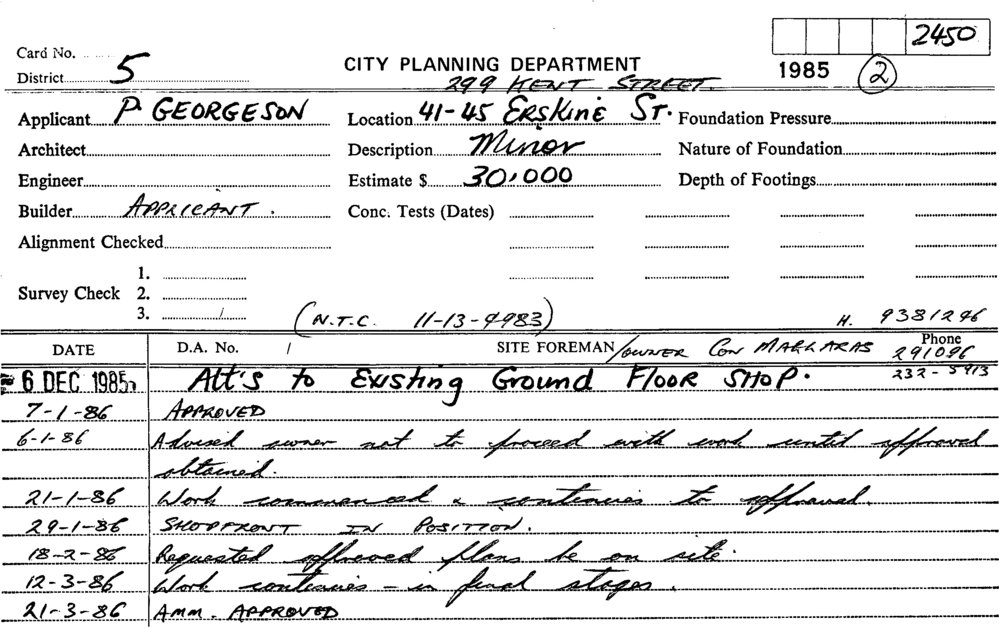 2450
Card No.
District 5
CITY PLANNING DEPARTMENT
299 KENT STREET.
1985 2
Applicant P. GEORGESON Location 41-45 ERSKINE ST. Foundation Pressure
Architect Description Minor Nature of Foundation
Engineer Estimate $ 30,000 Depth of Footings
Builder APPLICANT. Conc. Tests (Dates)
Alignment Checked
1.
Survey Check 2.
3.
(N.T.C. 11-13-4983) H. 9381296
DATE D.A. No. / SITE FOREMAN /OWNER CON Phone
291096
232-5913
6 DEC 1985 Alt's to Existing Ground Floor SHOP.
7-1-86 APPROVED
6-1-86 Advised owner not to proceed with work until approval
obtained.
21-1-86 Work commenced & continues to approval.
29-1-86 SHOPFRONT IN POSITION.
18-2-86 Requested approved plans be on site.
12-3-86 Work continues - in final stages.
21-3-86 AMM. APPROVED